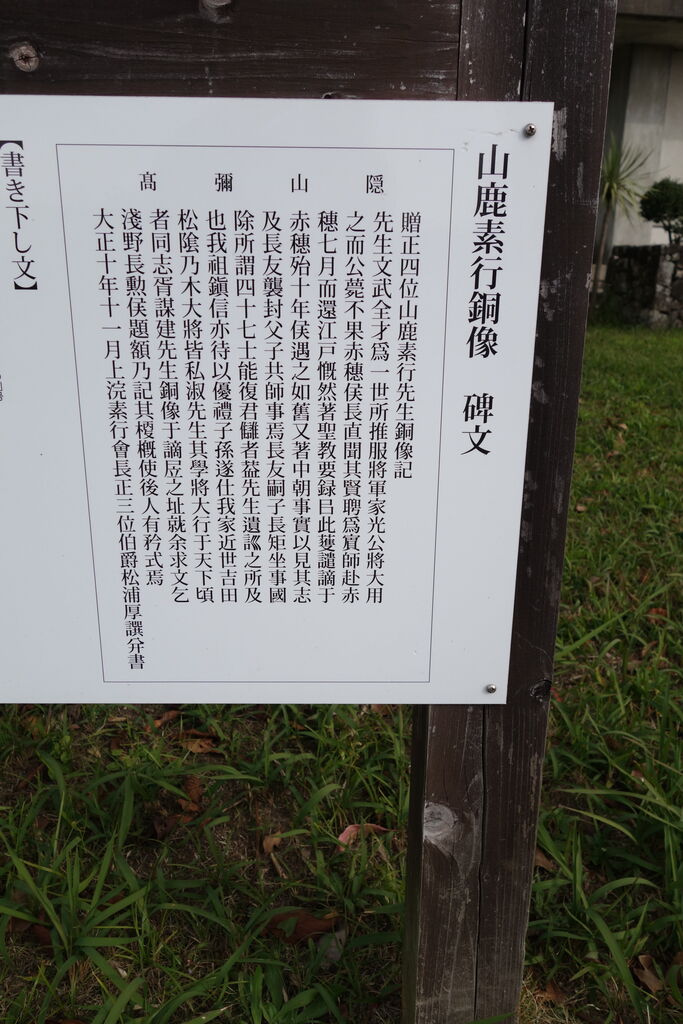 山鹿素行銅像 碑文
隠山彌高
贈正四位山鹿素行先生銅像記
先生文武全才爲一世所推服將軍家光公將大用
之而公薨不果赤穗侯長直聞其賢聘爲賓師赴赤
穗七月而還江戸慨然著聖教要録㠯此獲譴謫于
赤穗殆十年侯遇之如舊又著中朝事實以見其志
及長友襲封父子共師事焉長友嗣子長矩坐事國
除所謂四十七士能復君讎者葢先生遺訓之所及
也我祖鎭信亦待以優禮子孫遂仕我家近世吉田
松陰乃木大將皆私淑先生其學將大行于天下頃
者同志胥謀建先生銅像于謫凥之址就余求文乞
淺野長勳侯題額乃記其榎槪使後人有矜式焉
大正十年十一月上浣素行會長正三位伯爵松浦厚譔幷書
【書き下し文】